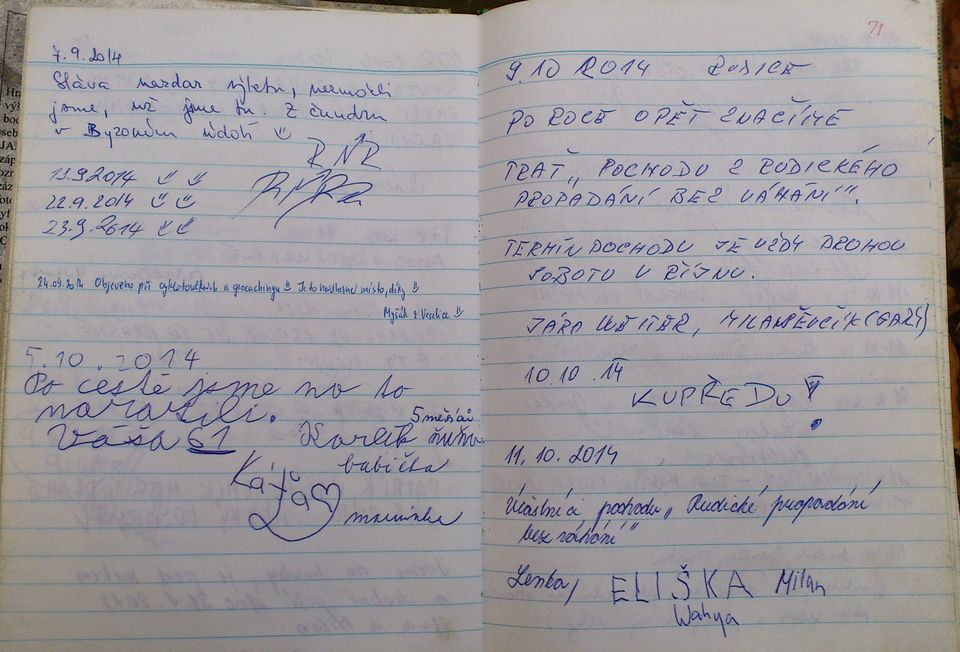 7.9.2014
Sláva nazdar výletu, nezmokli
jsme, už jsme tu. Z čundru
v Byronům údolí
RNR
13.9.2014
22.9.2014
23.9.2014
24.09.2014 Objeveno při cykotoulkách a geocachingu Je to nádherné místo, díky
Myšák z Veselice
5.10.2014
Po cestě jsme na to
narazili.
Váša 61 Karlík 5 měsíců
babička
Káťa
maminka
71
9 10 2014 RUDICE
PO ROCE OPĚT ZNAČÍME
TRAŤ „POCHODU Z RUDICKÉHO
PROPADÁNÍ BEZ VÁHÁNÍ".
TERMÍN POCHODU JE VŽDY DRUHOU
SOBOTU V ŘÍJNU.
JÁRA MILAN ŠEVČÍK (GARY)
10.10.14
KUPŘEDU!
11.10.2014
Účastníci pochodu „Rudické propadání
bez váhání"
Lenka, ELIŠKA Milan
Wahya